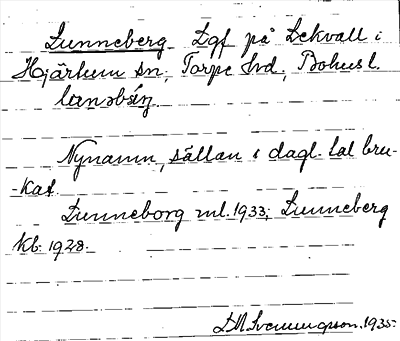 Lunneberg Lgf på Lekvall i
Hjärtum sn, Torpe hd, Bohusl.
Nynamn, sällan i dagl. tal bru-
-kat.
Lunneborg ml. 1933; Lunneberg
kb. 1928.
1935.